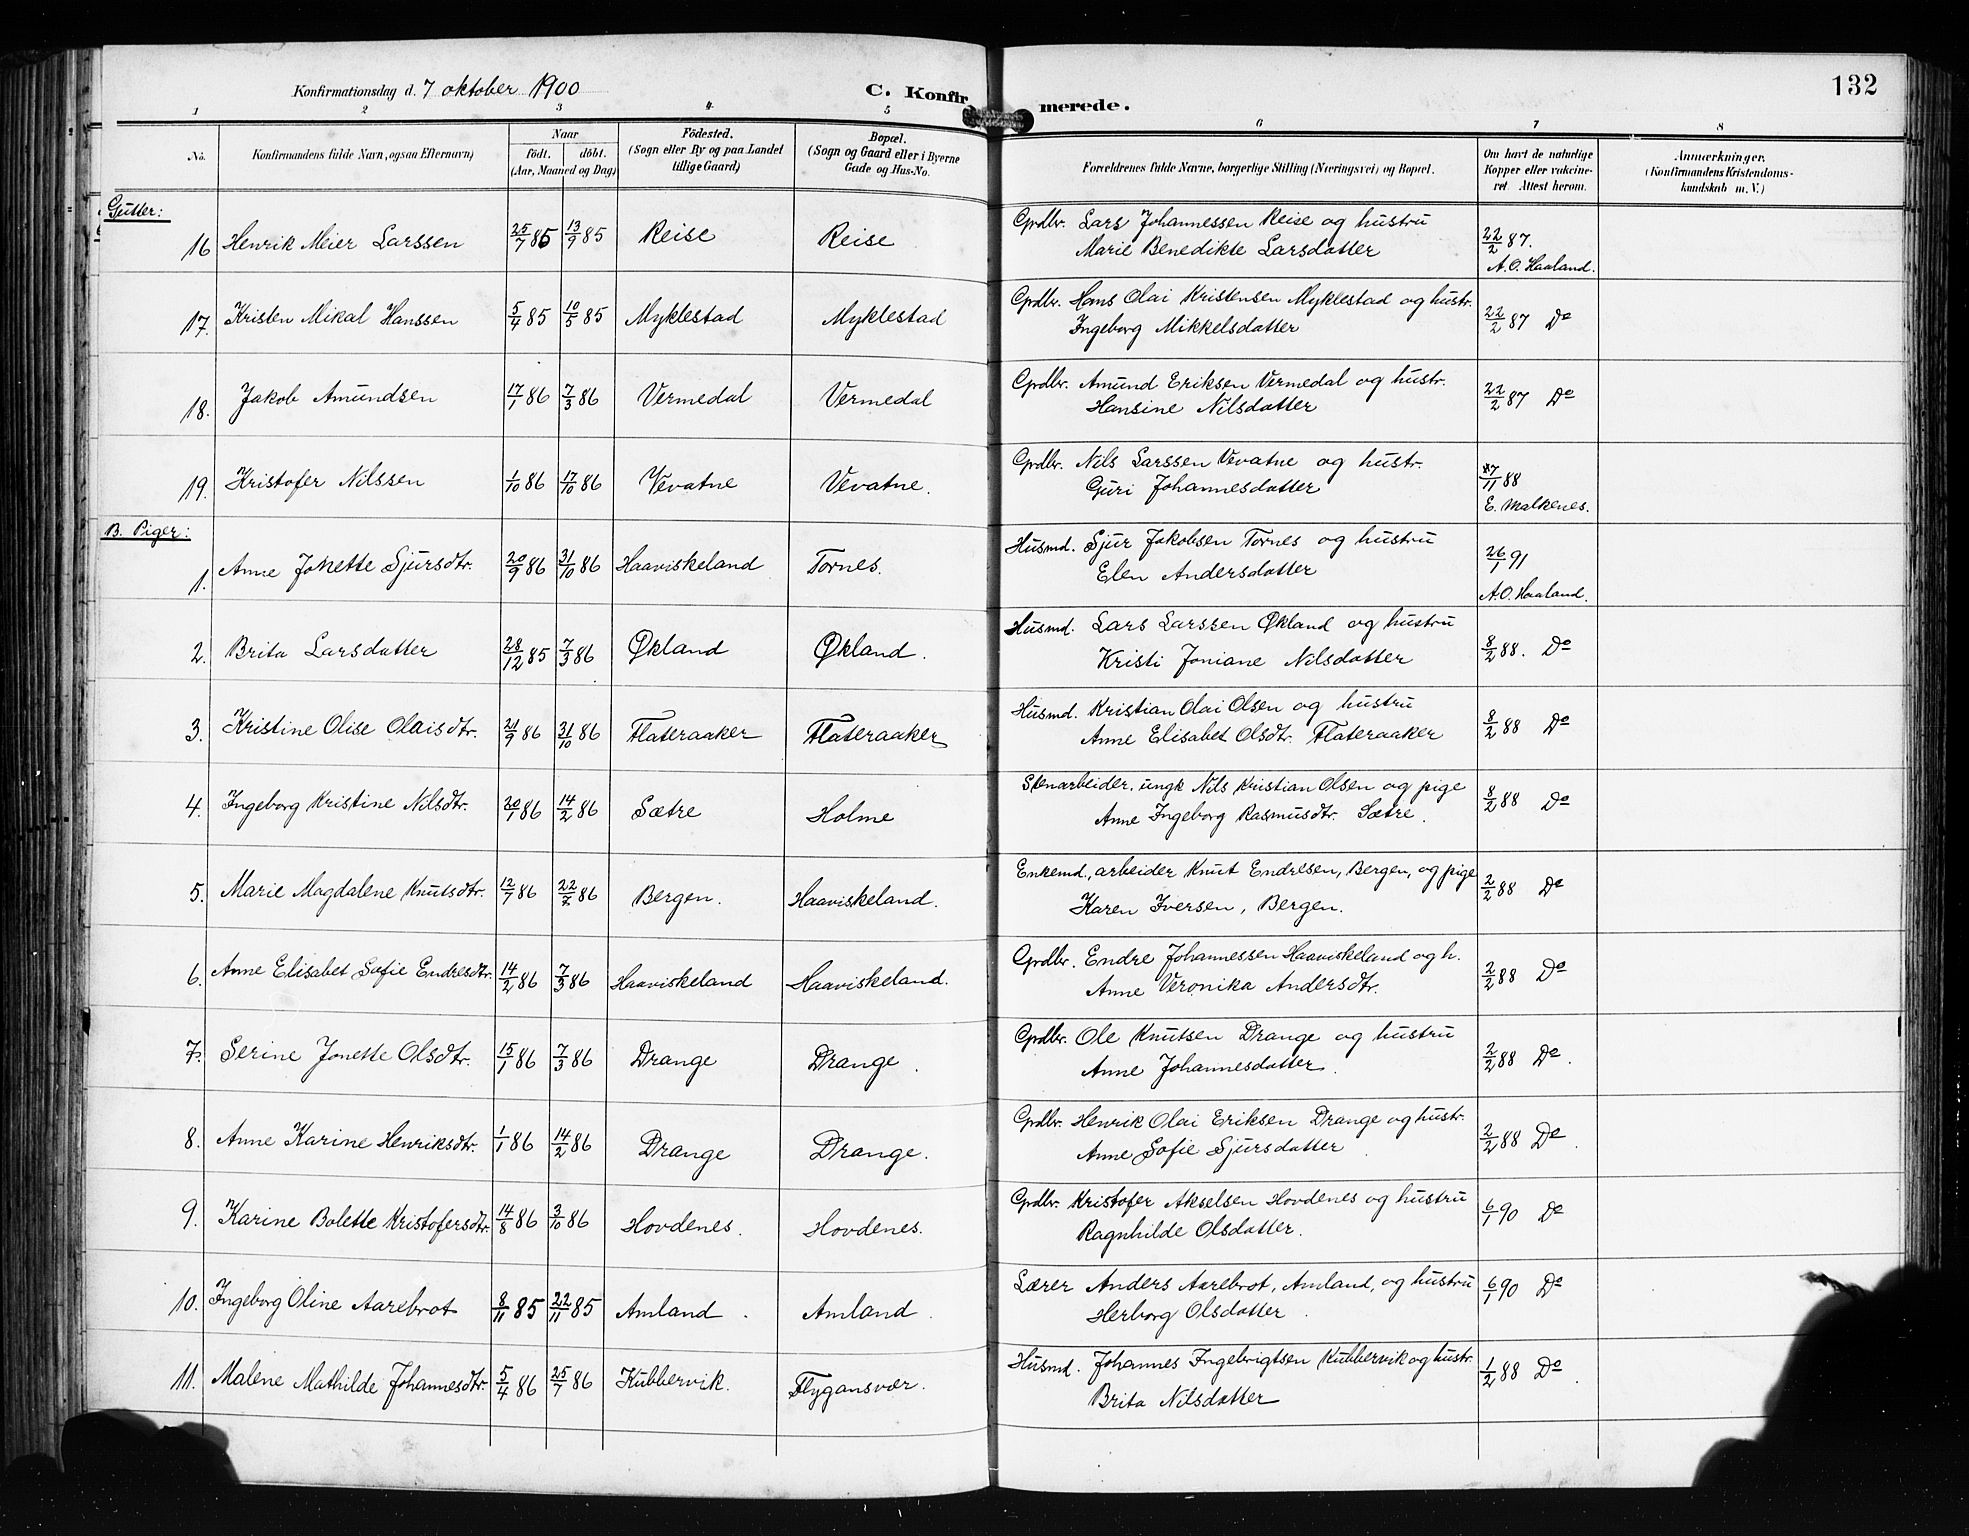 Konfirmationsdag d. 7 oktober 1900 C. Konfirmerede. 132
1 2 3 4 5 6 7 8
No. Konfirmandens fulde Navn, ogsaa Efternavn) Naar født. døbt. (Aar, Maaned og Dag) Fødested. (Sogn eller By og paa Landet tillige Gaard) Bopæl. (Sogn og Gaard eller i Byerne Gade og Hus-No. Forældrenes fulde Navne, borgerlige Stilling (Næringsvei) og Bopæl. Om havt de naturlige Kopper eller vakcineret. Attest herom. Anmærkninger. (Konfirmandens Kristendomskundskab m. V.)
Gutter:
16 Henrik Meier Larssen 25/7 85 13/9 85 Reise Reise Grdbr. Lars Johannessen Reise og hustru
Marie Benedikte Larsdatter 22/2 87. A.O. Haaland.
17. Kristen Mikal Hanssen 5/4 85 10/5 85 Myklestad Myklestad Grdbr. Hans Olai Kristensen Myklestad og hustr.
Ingeborg Mikkelsdatter 22/2 87 Do
18. Jakob Amundsen 17/1 86 7/3 86 Vermedal Vermedal Grdbr. Amund Eriksen Vermedal og hustr.
Hansine Nilsdatter 22/2 87 Do
19. Kristofer Nilssen 1/10 86 17/10 86 Vevatne Vevatne. Grdbr. Nils Larssen Vevatne og hustr.
Guri Johannesdatter 7/11 88 E. Malkenes.
B. Piger:
1. Anne Jokette Sjursdtr. 20/9 86 31/10 86 Haaviskeland Tornes. Husmd. Sjur Jakobsen Tornes og hustru
Elen Andersdatter 26/1 91 A.O. Haaland.
2. Brita Larsdatter 28/12 85 7/3 86 Økland Økland. Husmd. Lars Larssen Økland og hustru
Kristi Joniane Nilsdatter 8/2 88. Do
3. Kristine Olise Olaisdtr. 21/9 86 31/10 86 Flateraaker Flateraaker Husmd. Kristian Olai Olsen og hustru
Anne Elisabet Olsdtr. Flateraaker 8/2 88 Do
4. Ingeborg Kristine Nilsdtr. 20/1 86 14/2 86 Sætre Holme Stenarbeider, ungk. Nils Kristian Olsen og pige
Anne Ingeborg Rasmusdtr. Sætre. 8/2 88 Do
5. Marie Magdalene Knutsdtr. 12/7 86 22/7 86 Bergen. Haaviskeland. Enkemd., arbeider Knut Endresen, Bergen, og pige
Karen Iversen, Bergen. 2/2 88 Do
6. Anne Elisabet Sofie Endresdtr. 14/2 86 7/3 86 Haaviskeland Haaviskeland. Grdbr. Endre Johannessen Haaviskeland og h.
Anne Veronika Andersdtr. 2/2 88 Do
7. Serine Jonette Olsdtr. 15/1 86 7/3 86 Drange Drange. Grdbr. Ole Knutsen Drange og hustru
Anne Johannesdatter. 2/2 88 Do.
8. Anne Karine Henriksdtr. 1/1 86 14/2 86 Drange Drange. Grdbr. Henrik Olai Eriksen Drange og hustr.
Anne Sofie Sjursdatter 2/2 88 Do.
9. Karine Bolette Kristofersdtr. 14/8 86 3/10 86 Hovdenes. Hovdenes. Grdbr. Kristofer Akselsen Hovdenes og hustru
Ragnhilde Olsdatter. 6/1 90 Do
10. Ingeborg Oline Aarebrot 8/11 85 22/11 85 Amland. Amland. Lærer Anders Aarebrot, Amland, og hustru
Herborg Olsdatter. 6/1 90 Do
11. Malene Mathilde Johannesdtr. 5/4 86 25/7 86 Kubbervik. Flygansvær. Husmd. Johannes Ingebrigtsen Kubbervik og hustr.
Brita Nilsdatter 1/2 88 Do.